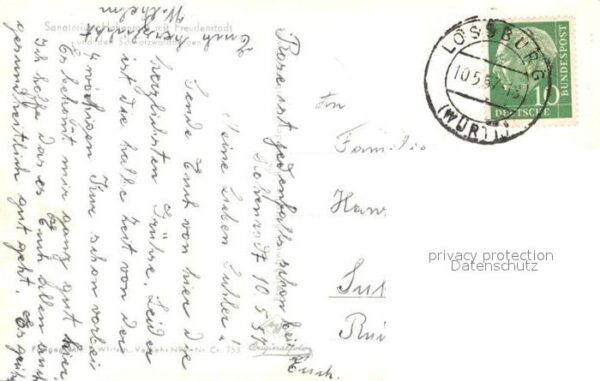 Sanatorium Hohenrodt mit Freudenstadt
und den Schwarzwaldhöhen
Rose ist jedenfalls schon bei
Euch.
Hohenrodt 10.5.57
Meine Lieben
Sende Euch von hier die
herzlichsten Grüsse. Leider
ist die halbe Zeit von der
4 wöchigen Kur schon vorbei
Es behagt mir ganz gut hier.
Ich hoffe das es Euch allen auch
gesundheitlich gut geht. Es grüßt
Euch herzlichst
Wilhelm
An
Familie
Han
Sul
LOSSBURG
10.5.57
(WÜRTT)
10
DEUTSCHE
BUNDESPOST
Nr. 753
Originalfoto
privacy protection
Datenschutz